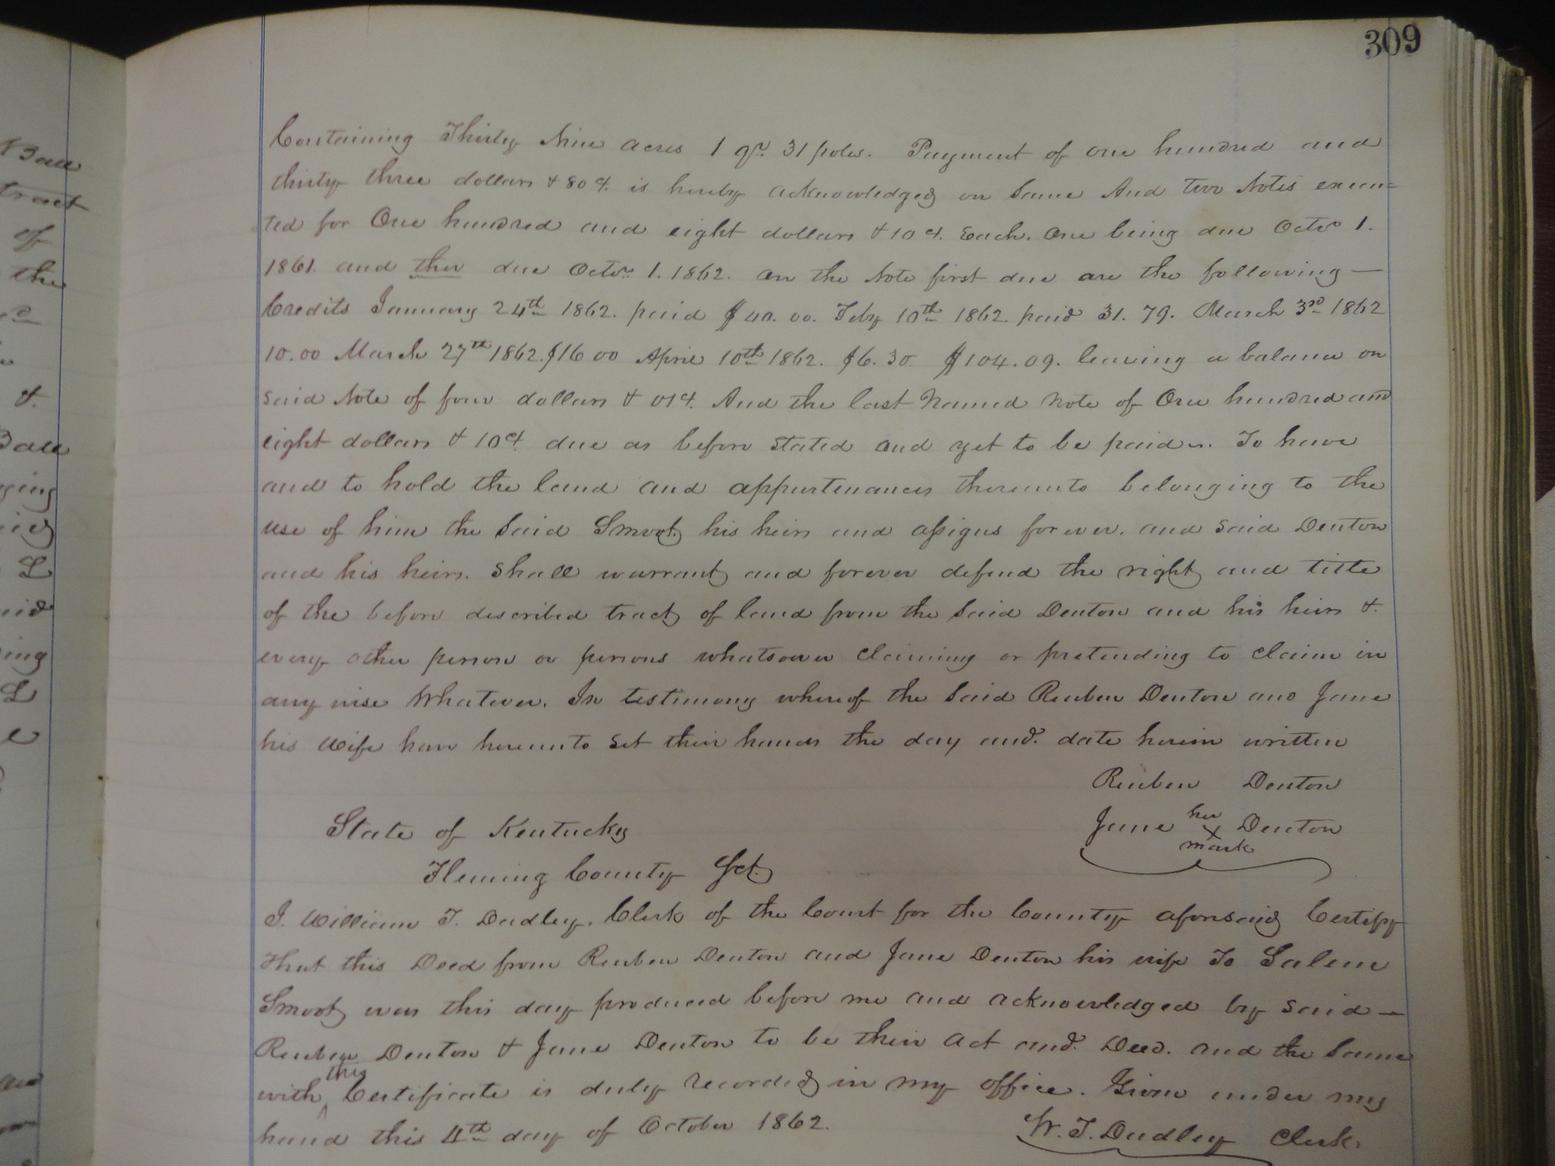 309
Containing Thirty Nine acres 1 qr. 31 poles. Payment of one hundred and
thirty three dollars & 80 cts. is hereby acknowledged on Same And two Notes execu=
ted for One hundred and eight dollars & 10 cts. Each. One being due Octor 1.
1861. and ther due Octor 1. 1862. On the Note first due are the following —
Credits January 24th 1862. paid $40.00. Feby 10th 1862 paid 31.79. March 3rd 1862
10.00 March 27th 1862. $16 00 April 10th 1862. $6.30 $104.09. leaving a balance on
said Note of four dollars & 01 ct. And the last Named Note of One hundred and
eight dollars & 10 ct. due as before stated and yet to be paid. To have
and to hold the land and appurtenances thereunto belonging to the
use of him the Said Smoot his heirs and assigns forever. and said Denton
and his heirs. shall warrant and forever defend the right and title
of the before described tract of land from the Said Denton and his heirs &
every other person or persons whatsoever claiming or pretending to claim in
any wise Whatever. In testimony whereof the Said Reuben Denton and Jane
his Wife have hereunto set their hands the day and date herein written
Reuben Denton
Jane her x mark Denton
State of Kentucky
Fleming County Sct
I. William T. Dudley. Clerk of the Court for the County aforesaid Certify
that this Deed from Reuben Denton and Jane Denton his wife To Salem
Smoot was this day produced before me and acknowledged by said —
Reuben Denton & Jane Denton to be their Act and Deed. and the Same
with this Certificate is duly recorded in my office. Given under my
hand this 4th day of October 1862. W. T. Dudley Clerk.
Ball
tract
of
the
&
Ball